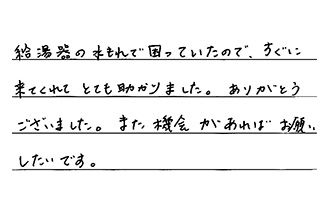 給湯器の水もれで困っていたので、すぐに
来てくれてとても助かりました。ありがとう
ございました。また機会があればお願い
したいです。